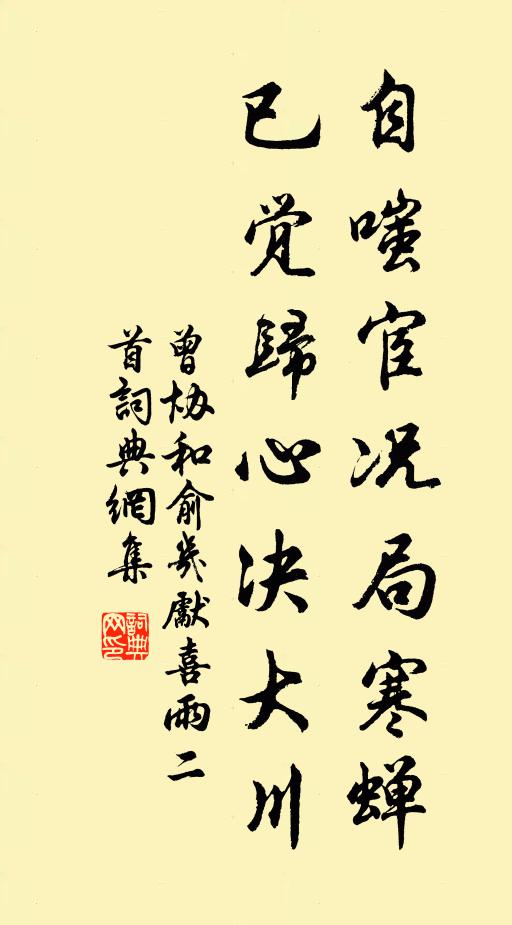 自嗤宦况局寒蝉
已觉歸心决大川
曾协和俞幾獻喜雨二
首詞典網集
詞典网印